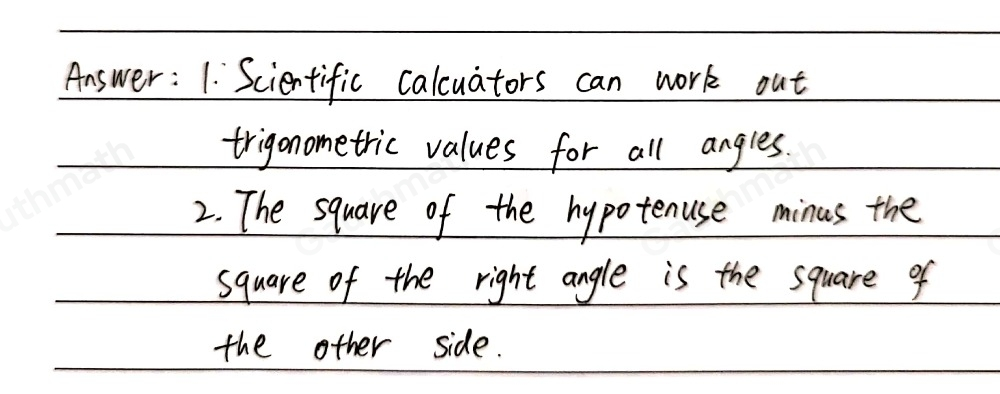 Answer: 1. Scientific calcuators can work out
trigonometric values for all angles.
2. The square of the hypotenuse minus the
square of the right angle is the square of
the other side.